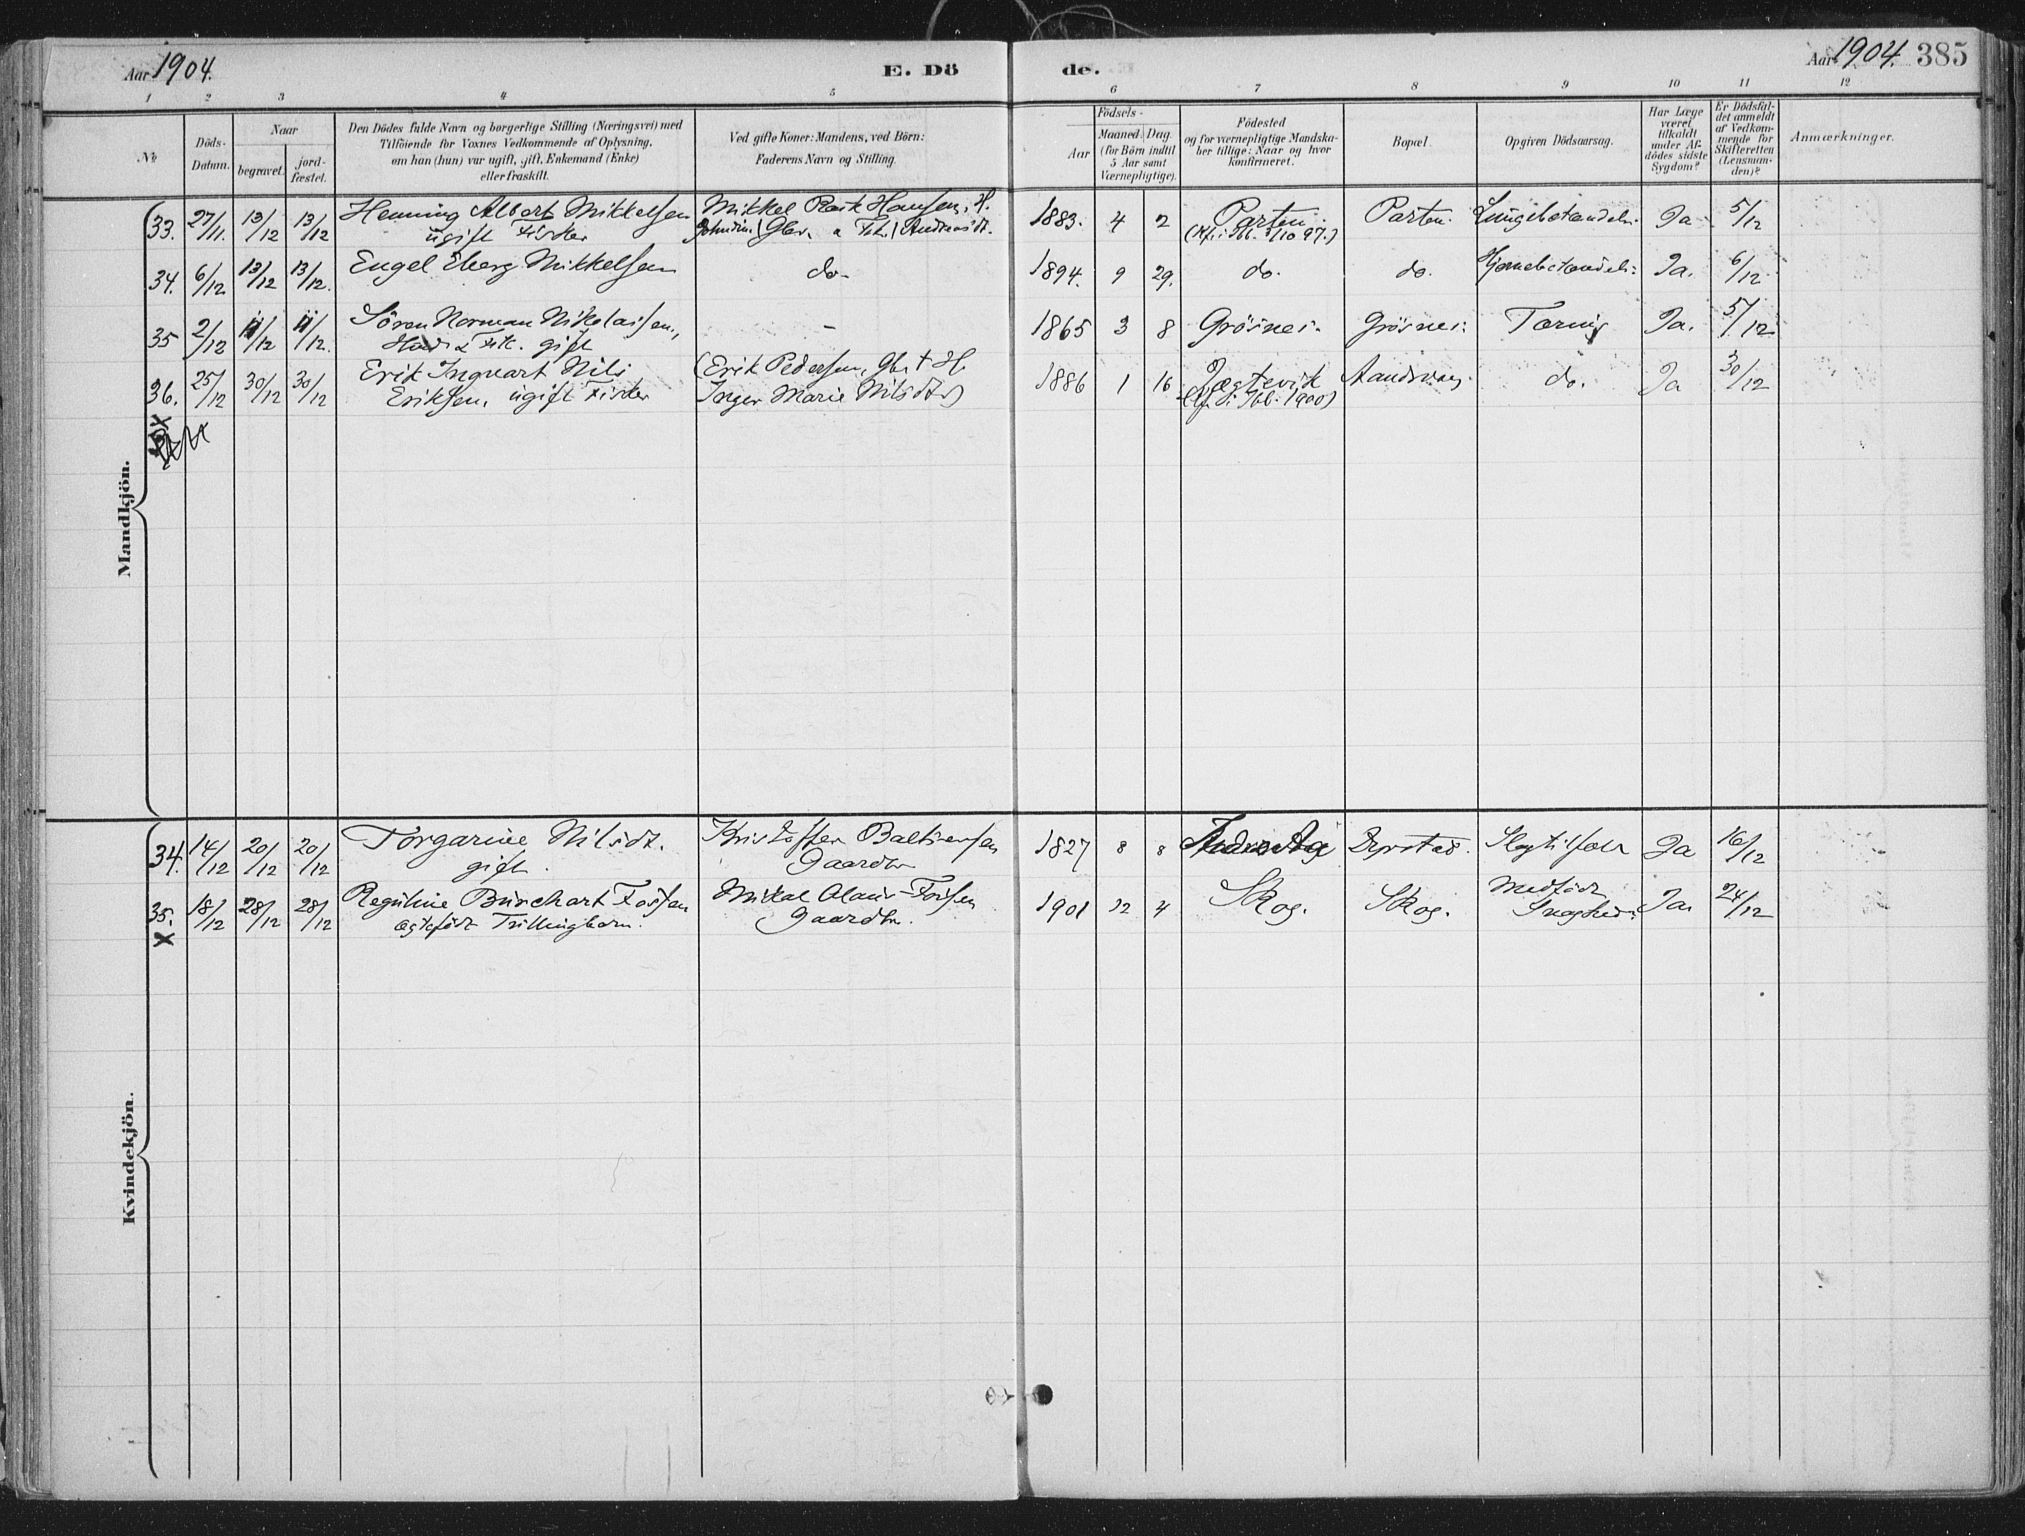 Aar 1904.
E. Dö
de.
Aar 1904. 385
1 2 3 4 5 6 7 8 9 10 11 12
No.
Döds-
Datum.
Naar
begravet.
jord-
fæstet.
Den Dödes fulde Navn og borgerlige Stilling (Næringsvei) med
Tilföiende for Voxnes Vedkommende af Oplysning,
om han (hun) var ugift, gift, Enkemand (Enke)
eller fraskilt.
Ved gifte Koner: Mandens, ved Börn:
Faderens Navn og Stilling.
Födsels-
Aar
Maaned. Dag.
(for Börn indtil
5 Aar samt
Værnepligtige).
Födested
og for værnepligtige Mandska-
ber tillige: Naar og hvor
konfirmeret.
Bopæl.
Opgiven Dödsaarsag.
Har Læge
været
tilkaldt
under Af-
dødes sidste
Sygdom?
Er Dödsfal-
det anmeldt
af Vedkom-
mende for
Skifteretten
(Lensman-
den)?
Anmærkninger.
Mandkjön.
33. 27/11. 13/12 13/12 Henning Albert Mikkelsen Mikkel Hansen, H. 1883. 4 2 Parten. Parten. Lungebetændels. Ja 5/12
ugift Fisker
34. 6/12 13/12 13/12. Engel Eberg Mikkelsen do 1894. 9 29. do. do. Hjernebetændels: Ja. 6/12
35 2/12 11/12 11/12. Sören Norman Nikolaisen, - 1865 3 8 Grösnes. Grösnes. Tæring Ja. 5/12
gift
36. 25/12 30/12 30/12 Erik Ingvart Nils (Erik Pedersen, Gbr. & H. 1886 1 16 Jægtevik do. Ja 30/12
Eriksen, ugift Fisker Inger Marie Nilsdtr)
Kvindekjön.
34. 14/12 20/12 20/12 Torgarine Nilsdt. Kristoffer Baltsersen 1827 8 8 Dyrstad. Ja 16/12
gift. Gaardbr
35. 18/12 28/12 28/12 Reguline Burchart Fossen Mikal Olaus Fossen 1901 12 4 Skog. Skog. Medfödt Ja 24/12
ægtefödt Trillingbarn. Gaardbr. Svaghed.
X